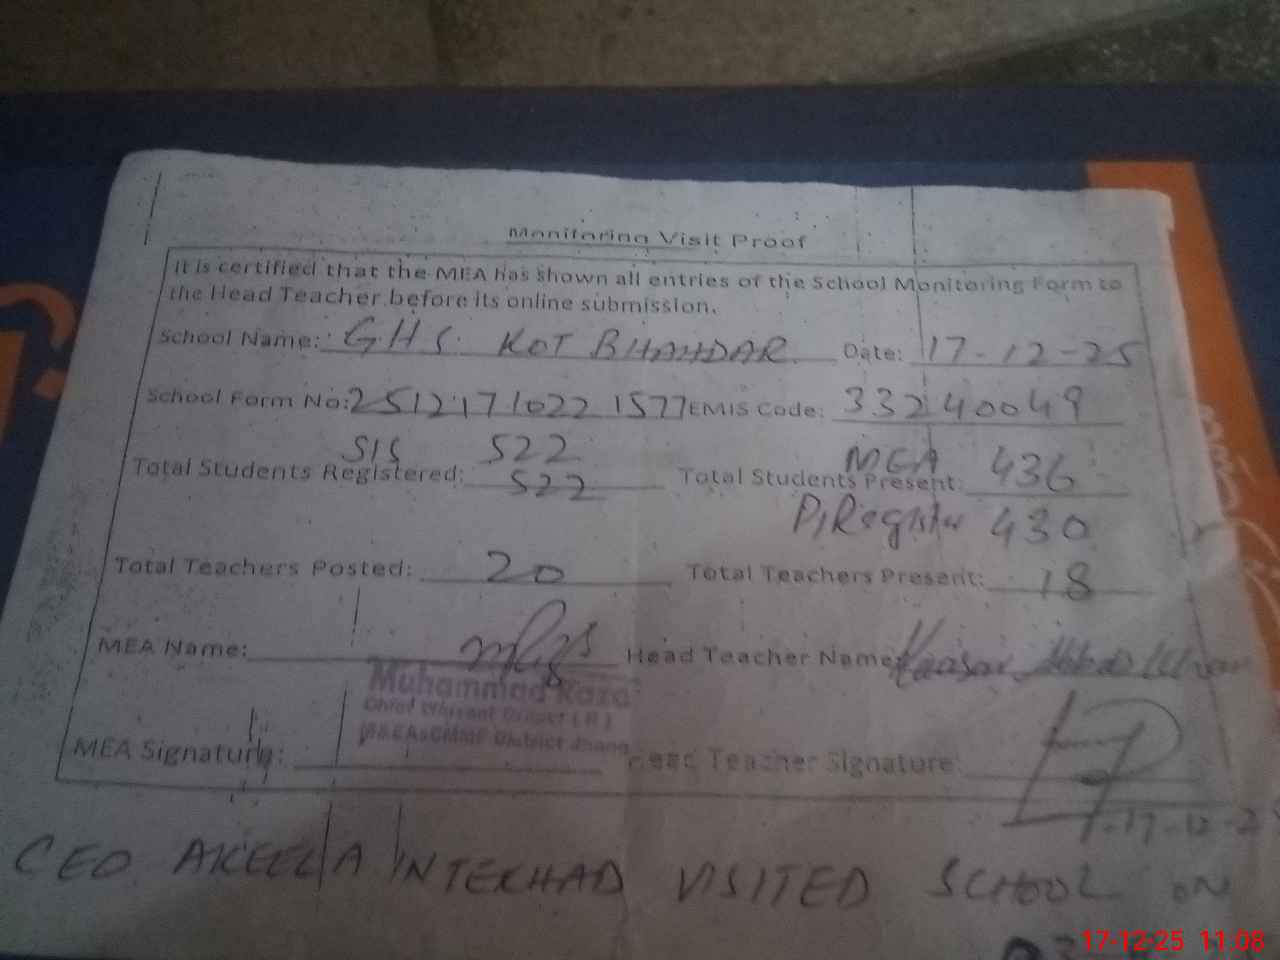 Monitoring Visit Proof
It is certified that the MEA has shown all entries of the School Monitoring Form to
the Head Teacher before its online submission.
School Name: GHS KOT BHANDAR Date: 17-12-25
School Form No: 25121710221577 EMIS Code: 33240049
SIS 522 MEA 436
Total Students Registered: 522 Total Students Present:
P,Register 430
Total Teachers Posted: 20 Total Teachers Present: 18
MEA Name: Head Teacher Name
Muhammad Raza
MEA Signature: Head Teacher Signature:
17-12-2
CEO AKEELA INTEKHAB VISITED SCHOOL ON
17-12-25 11:08